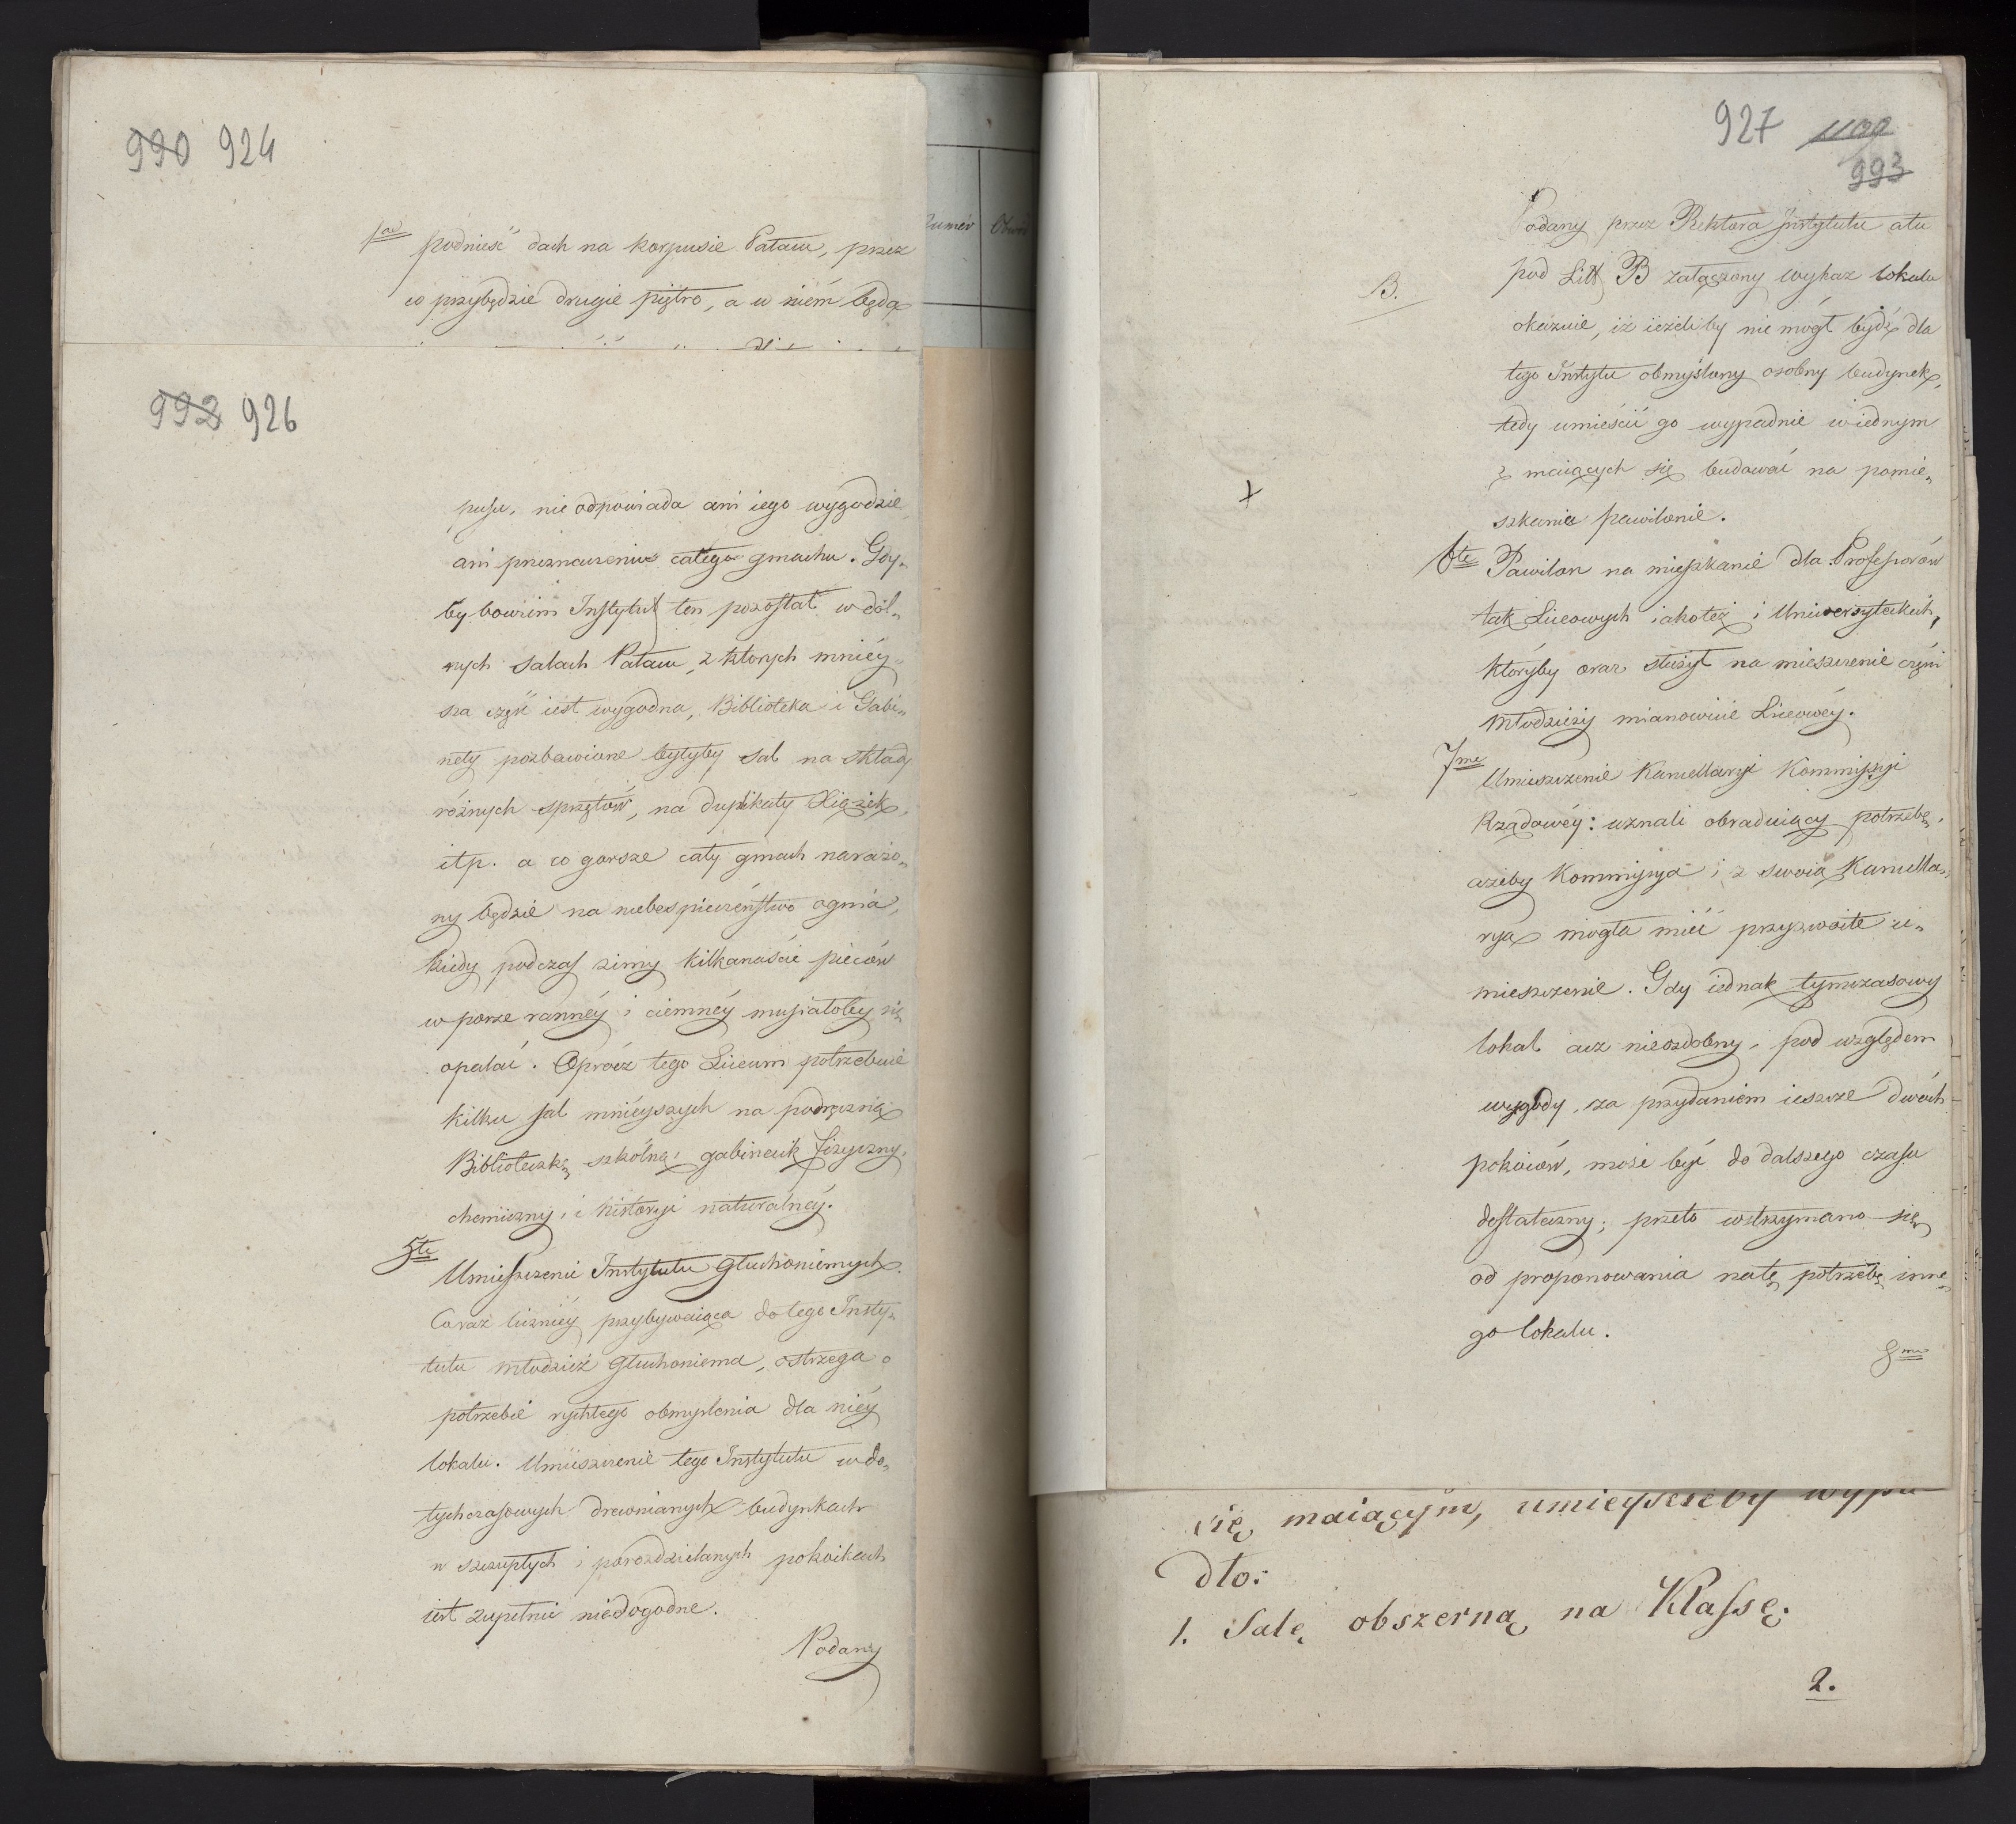 990 924
1ad podnieść dach na korpusie Pałacu, przez
co przybędzie drugie piętro, a w niém będą
992 926
pusu, nie odpowiada ani iego wygodzie
ani przeznaczeniu całego gmachu. Gdy„
by bowiem Instytut ten pozostał w dol„
nych salach Pałacu, z których mniéy„
sza część iest wygodna, Biblioteka i Gabi„
nety pozbawione byłyby sal na składy
różnych sprzętów, na duplikaty Xiążek,
itp. a co gorsze cały gmach narażo„
ny będzie na niebespieczeństwo ognia,
kiedy podczas zimy kilkanaście pieców
w porze rannéy i ciemnéy musiałoby się
opalać. Oprócz tego Liceum potrzebuie
kilku sal mnieyszych na podręczną
Biblioteczkę szkólną, gabinecik fizyczny,
chemiczny, i historyi naturalnéy.
5te Umieszczenie Instytutu Głuchoniemych.
Coraz liczniéy przybywaiąca do tego Insty„
tutu młodzież Głuchoniema, ostrzega o
potrzebie rychłego obmyślenia dla niéy
lokalu. Umieszczenie tego Instytutu w do„
tychczasowych drewnianych budynkach
w szczupłych i porozdzielanych pokoikach
iest zupełnie niedogodne.
Podany
Numér
927 1109
993
Podany przez Rektora Instytutu a tu
B. pod Litt B załączony wykaz lokalu
okazuie, iż ieżeliby nie mógł bydź dla
tego Instytu obmyślony osobny budynek,
tedy umieścić go wypadnie w iednym
z maiących się budować na pomie„
szkania pawilonie.
6te Pawilon na mieszkanie dla Professorów
tak Liceowych iakoteż i Uniwersyteckich,
któryby oraz służył na mieszczenie części
młodzieży mianowicie Liceowéy.
7me Umieszczenie Kancellaryi Kommissyi
Rządowéy: uznali obraduiący potrzebę,
ażeby Kommissya i z swoią Kancella„
ryą mogła mieć przyzwoite u„
mieszczenie. Gdy iednak tymczasowy
lokal acz nieozdobny, pod względem
wygody, za przydaniem ieszcze dwóch
pokoiów, może być do dalszego czasu
dostateczny; przeto wstrzymano się
od proponowania na tę potrzebę inne„
go lokalu.
8me
się maiącym, umieyscic by wypa
dło:
1. Salę obszerną na Klassę.
2.